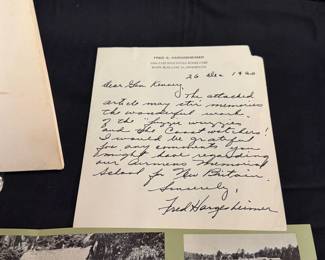 FRED G. HARGESHEIMER
26 Dec 1980
Dear Gen Kenney,
The attached
article may stir memories
the wonderful work
of the "fuzzie wuzzies
and the Coast watchers!
I would be grateful
for any comments you
might have regarding
our Airmens Memorial
School for New Britain.
Sincerely,
Fred Hargesheimer